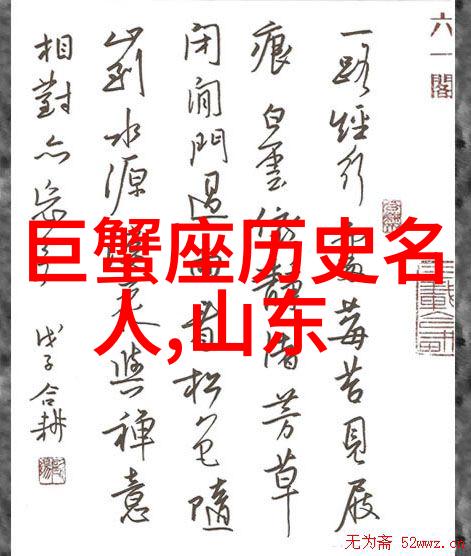 六一閣
一路經行處莓苔見屐
痕白雲依靜渚芳草
閉閑門過雨看松色隨
山到水源與禪意
相對亦忘言
戊子合耕
巨蟹座历史名
人,山东
无为斋 52wwz.c